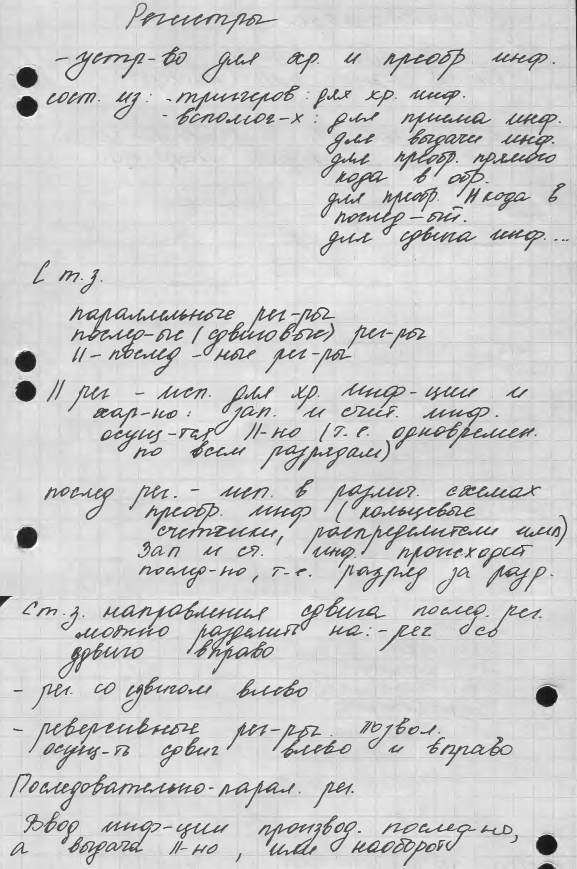 Регистры
- устр-во для хр. и преобр инф.
сост. из: - триггеров: для хр. инф.
- вспомог-х: для приема инф.
для выдачи инф.
для преобр. прямого
кода в обр.
для преобр. II кода в
послед-ый.
для сдвига инф...
С т.з.
параллельные рег-ры
послед-ые (сдвиговые) рег-ры
II - послед - ные рег-ры
II рег - исп. для хр. инф-ции и
хар-но: зап. и счит. инф.
осущ-тся II-но (т.е. одновремен.
по всем разрядам)
послед рег. - исп. в различ. схемах
преобр. инф (кольцевые
счетчики, распределители имп)
Зап и ст. инф. происходит
послед-но, т.е. разряд за разр.
С т.з. направления сдвига послед. рег.
можно разделить на: - рег со
сдвиго вправо
- рег. со сдвигом влево
- реверсивные рег-ры. позвол.
осущ-ть сдвиг влево и вправо
Последовательно-парал. рег.
Ввод инф-ции производ. послед-но,
а выдача II-но, или наоборот